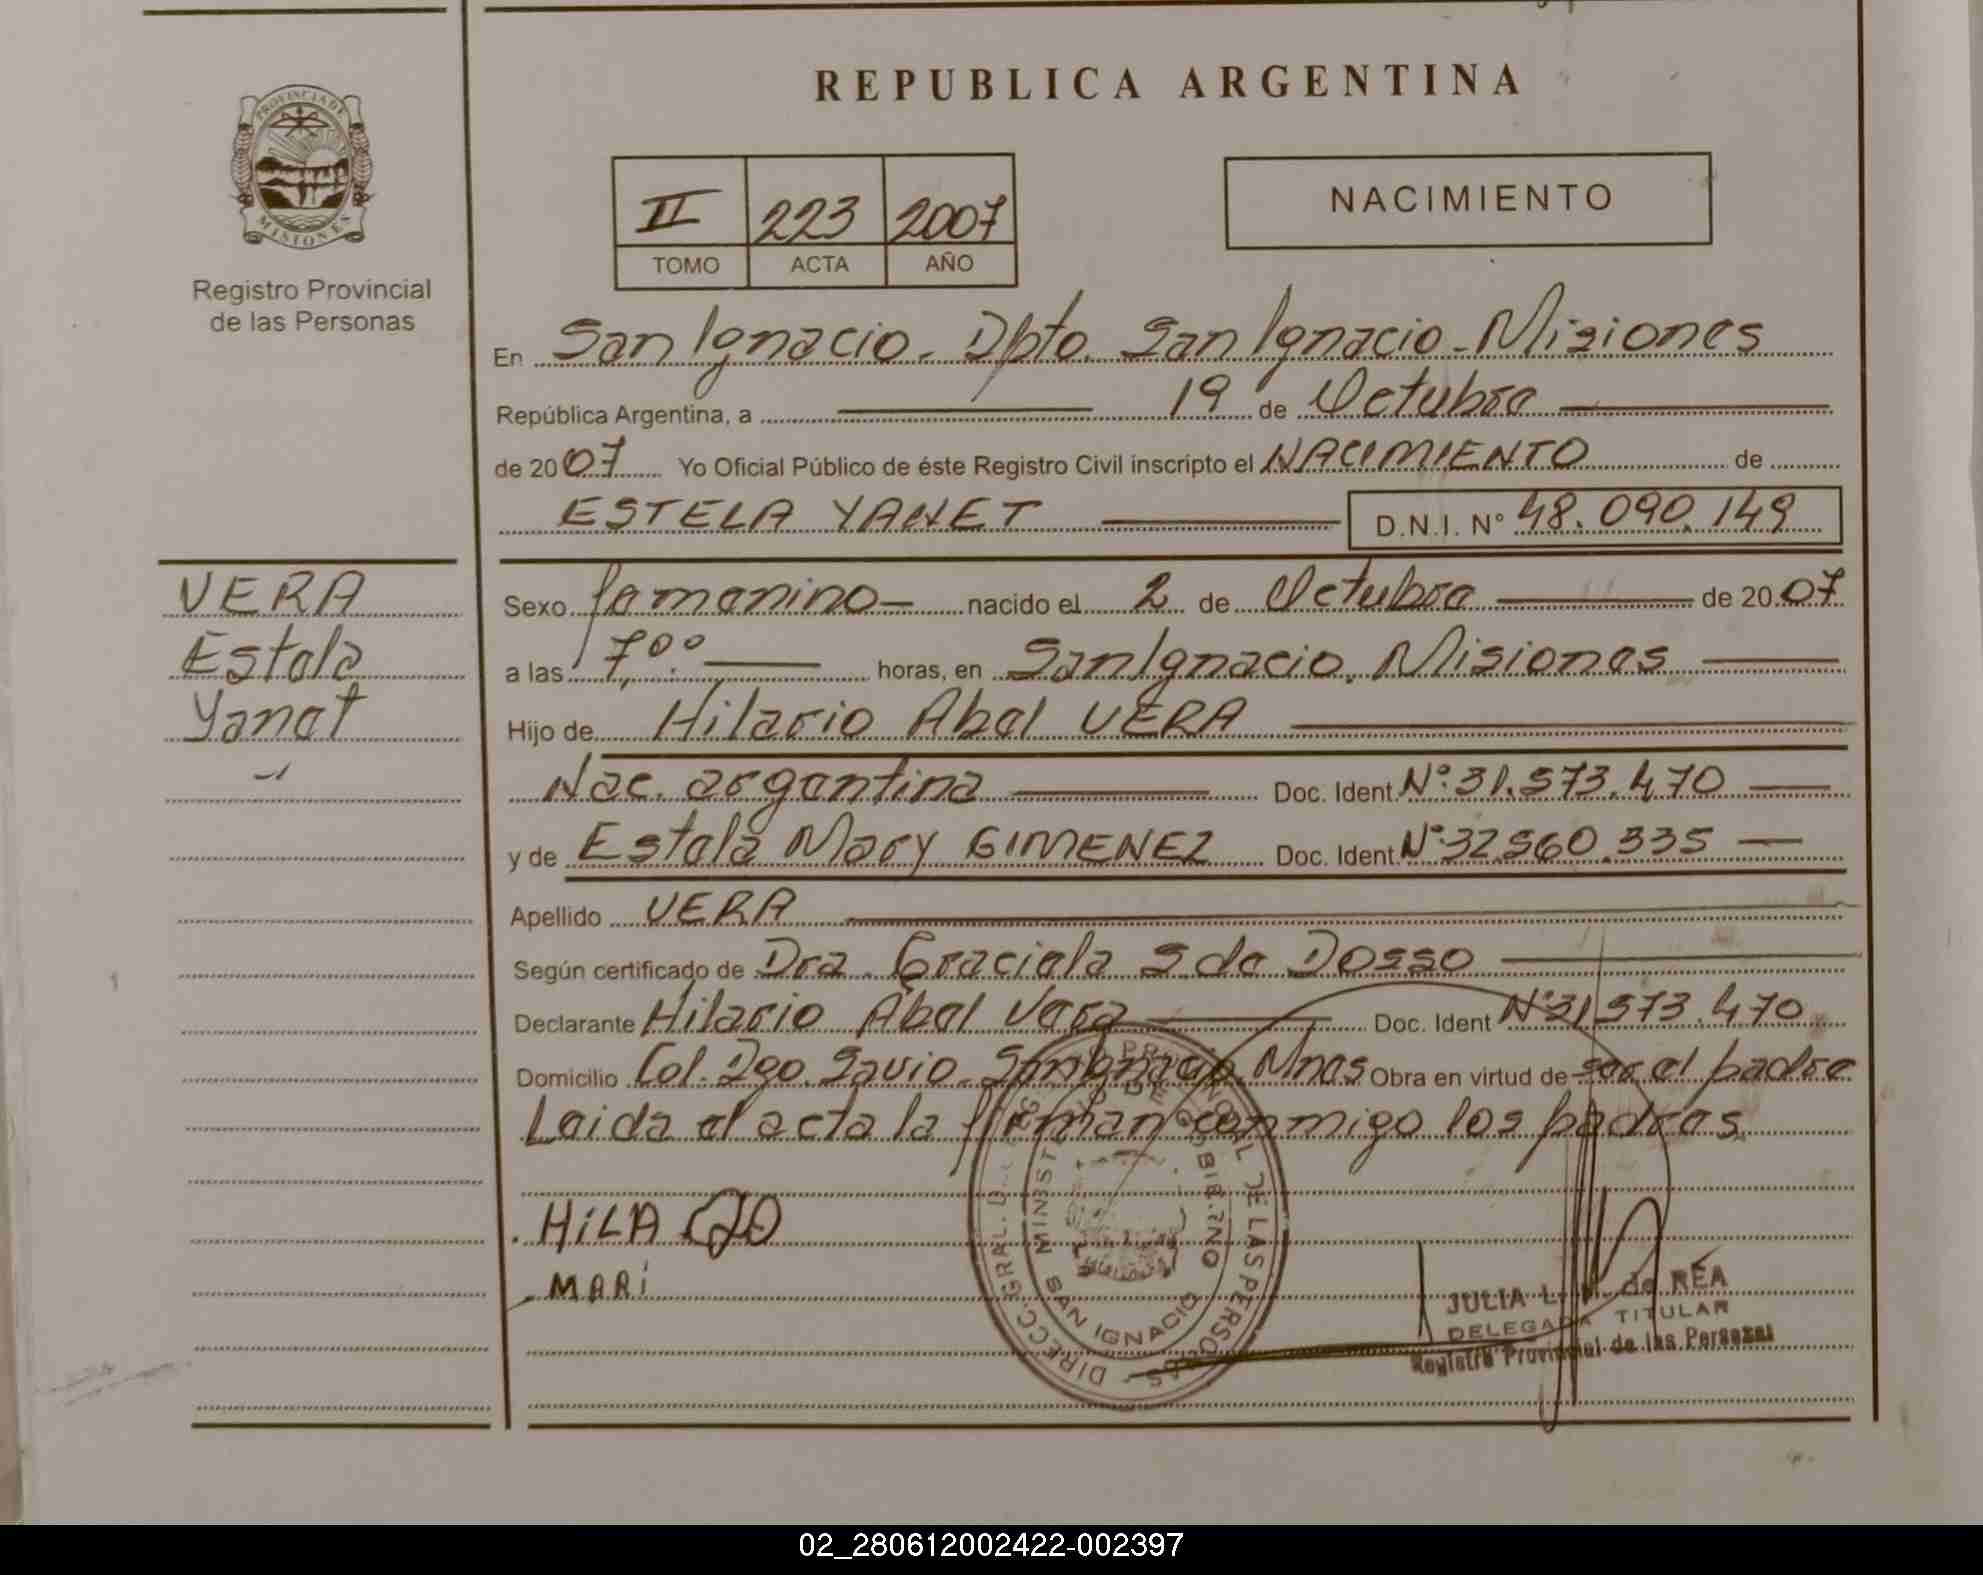 REPUBLICA ARGENTINA
PROVINCIA DE
MISIONES
Registro Provincial
de las Personas
II 223 2007
TOMO ACTA AÑO
NACIMIENTO
En San Ignacio - Dpto. San Ignacio - Misiones
República Argentina, a 19 de Octubre
de 2007 Yo Oficial Público de éste Registro Civil inscripto el NACIMIENTO de
ESTELA YANET D.N.I. N° 48.090.149
VERA
Estela
Yanet
Sexo femenino - nacido el 2 de Octubre de 2007
a las 7,00. horas, en San Ignacio, Misiones
Hijo de Hilario Abel VERA
Nac. argentina Doc. Ident. N°. 31.573.470
y de Estela Mary GIMENEZ Doc. Ident. N° 32.560.335
Apellido VERA
Según certificado de Dra. Graciela S. de Dosso
Declarante Hilario Abel Vera Doc. Ident N° 31.573.470
Domicilio Col. Dgo. Savio - San Ignacio, Mnes Obra en virtud de ser el padre
Leida el acta la firman conmigo los padres
HiLA RIO
MARi
DIRECC. GRAL. DEL REG. PROVINCIAL DE LAS PERSONAS
MINISTERIO DE GOBIERNO
SAN IGNACIO
JULIA L. de REA
DELEGADA TITULAR
Registro Provincial de las Personas
02_280612002422-002397